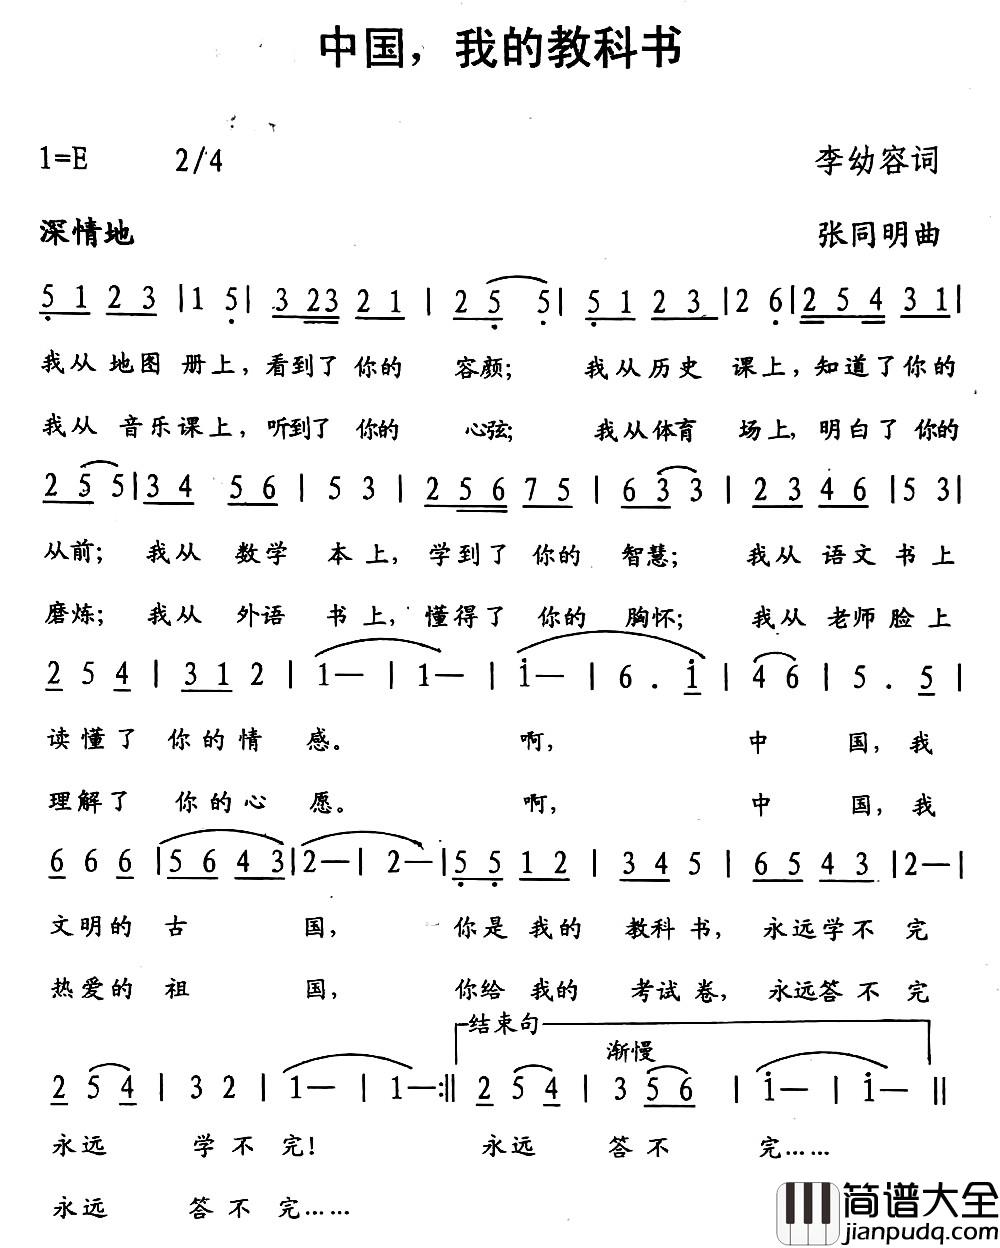 中国，我的教科书
1=E 2/4 李幼容词
深情地 张同明曲
5 1 2 3 | 1 5 | 3 2 3 2 1 | 2 5 5 | 5 1 2 3 | 2 6 | 2 5 4 3 1 |
我从 地图 册上，看到了 你的 容颜； 我从历史 课上，知道了你的
我从 音乐课上，听到了 你的 心弦； 我从体育 场上，明白了你的
2 5 5 | 3 4 5 6 | 5 3 | 2 5 6 7 5 | 6 3 3 | 2 3 4 6 | 5 3 |
从前； 我从 数学 本上，学到了 你的 智慧； 我从 语文 书上
磨炼； 我从 外语 书上，懂得了 你的 胸怀； 我从 老师 脸上
2 5 4 | 3 1 2 | 1 — | 1 — | i — | 6 . i | 4 6 | 5 . 5 |
读懂了 你的情 感。 啊， 中 国，我
理解了 你的心 愿。 啊， 中 国，我
6 6 6 | 5 6 4 3 | 2 — | 2 — | 5 5 1 2 | 3 4 5 | 6 5 4 3 | 2 — |
文明的 古 国， 你是 我的 教科 书，永远学不 完
热爱的 祖 国， 你给 我的 考试 卷，永远答不 完
结束句
渐慢
2 5 4 | 3 2 | 1 — | 1 — :‖ 2 5 4 | 3 5 6 | i — | i — ‖
永远 学不 完！ 永远 答不 完……
永远 答不 完……
简谱大全
jianpudq.com